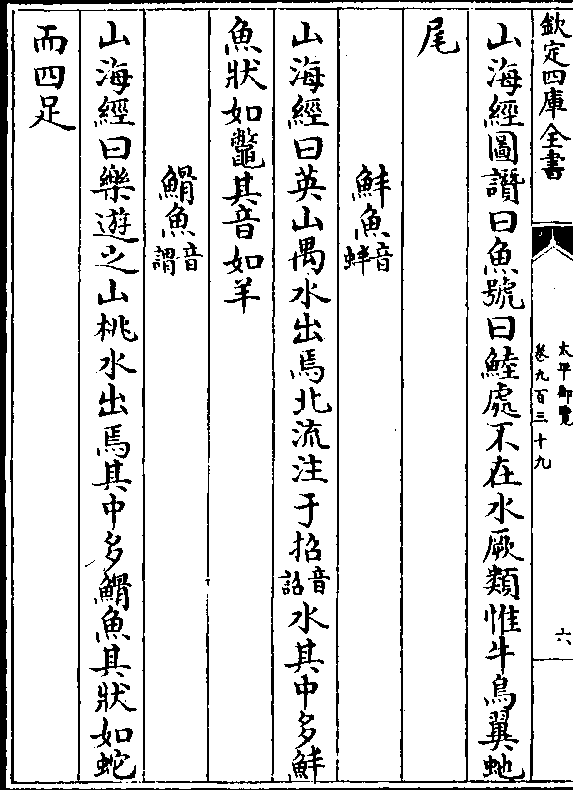 欽定四庫全書
太平御覽
卷九百三十九
六
山海經圖讚曰魚號曰鯥處不在水厥類惟牛鳥翼虵
尾
鮮魚音蚌
山海經曰英山禺水出焉北流注于招音詔水其中多鮮
魚狀如鼈其音如羊
鰨魚音謂
山海經曰樂遊之山桃水出焉其中多䱻魚其狀如蛇
而四足